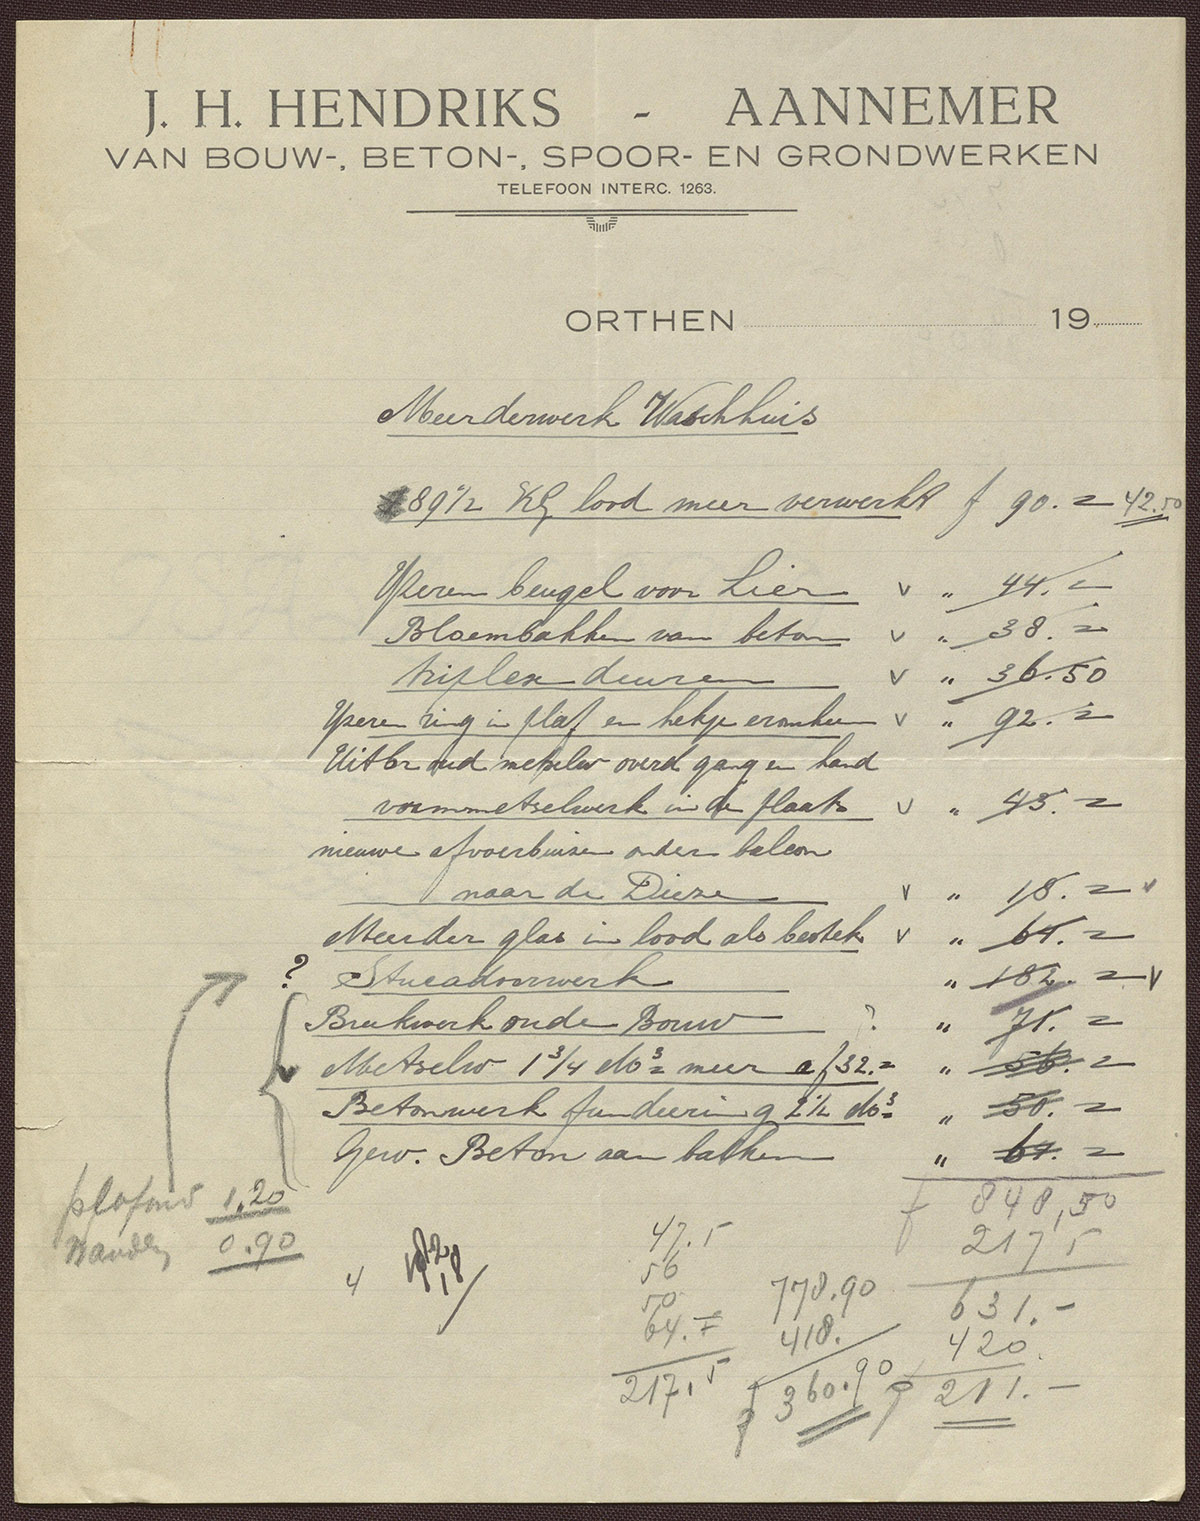 J. H. HENDRIKS - AANNEMER
VAN BOUW-, BETON-, SPOOR- EN GRONDWERKEN
TELEFOON INTERC. 1263.
ORTHEN 19
Meerderwerk Waschhuis
89 1/2 KG lood meer verwerkt f 90.= 42.50
IJseren beugel voor Lier v " 44.=
Bloembakken van beton v " 38.=
triplex deuren v " 36.50
IJseren ring in plaf en hekje eromheen v " 92.=
metselw overd gang en hand
vormmetselwerk in de plaats v " 45.=
nieuwe afvoerbuizen onder balcon
naar de Dieze v " 18.= v
Meerder glas in lood als bestek v " 64.=
? Stucadoorwerk " 182.= v
Breekwerk oude Bouw ? " 75.=
Metselw 1 3/4 M3 meer a f 32.= " 56.=
Betonwerk fundeering 2 1/2 M3 " 50.=
Gew. Beton aan balken " 64.=
plafond 1.20
Wanden 0.90
f 848,50
217 5
631.-
420.
211.-
47.5
56
50
64.=
217.5
778.90
418.
f 360.90
4